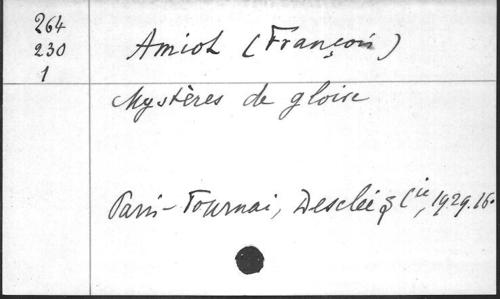 264
230
1
Amiot (François)
Mystères de gloire
Paris-Tournai, Desclée & Cie, 1929. 16°